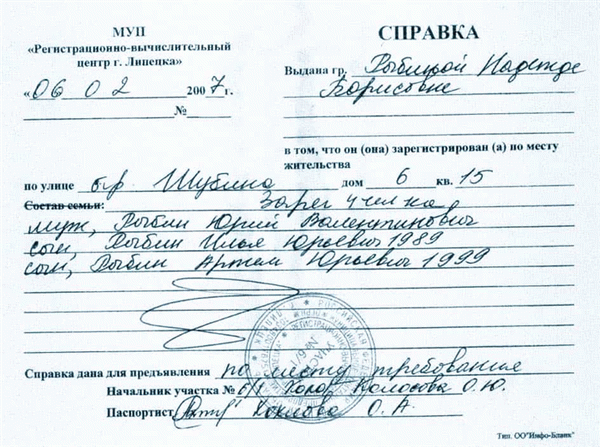 МУП
«Регистрационно-вычислительный
центр г. Липецка»
«06 02 2007 г.
№
СПРАВКА
Выдана гр. Рыблиной Надежде
Борисовне
в том, что он (она) зарегистрирован (а) по месту
жительства
по улице б-р Шубина дом 6 кв. 15
Состав семьи: Зарег 4 чел на
муж, Рыблин Юрий Валентинович
сын, Рыблин Илья Юрьевич 1989
сын, Рыблин Артем Юрьевич 1999
Справка дана для предъявления по месту требования
Начальник участка № 6/1 Колосова О.Ю.
Паспортист О. А.
Тип. ОО"Инфо-Бланк"